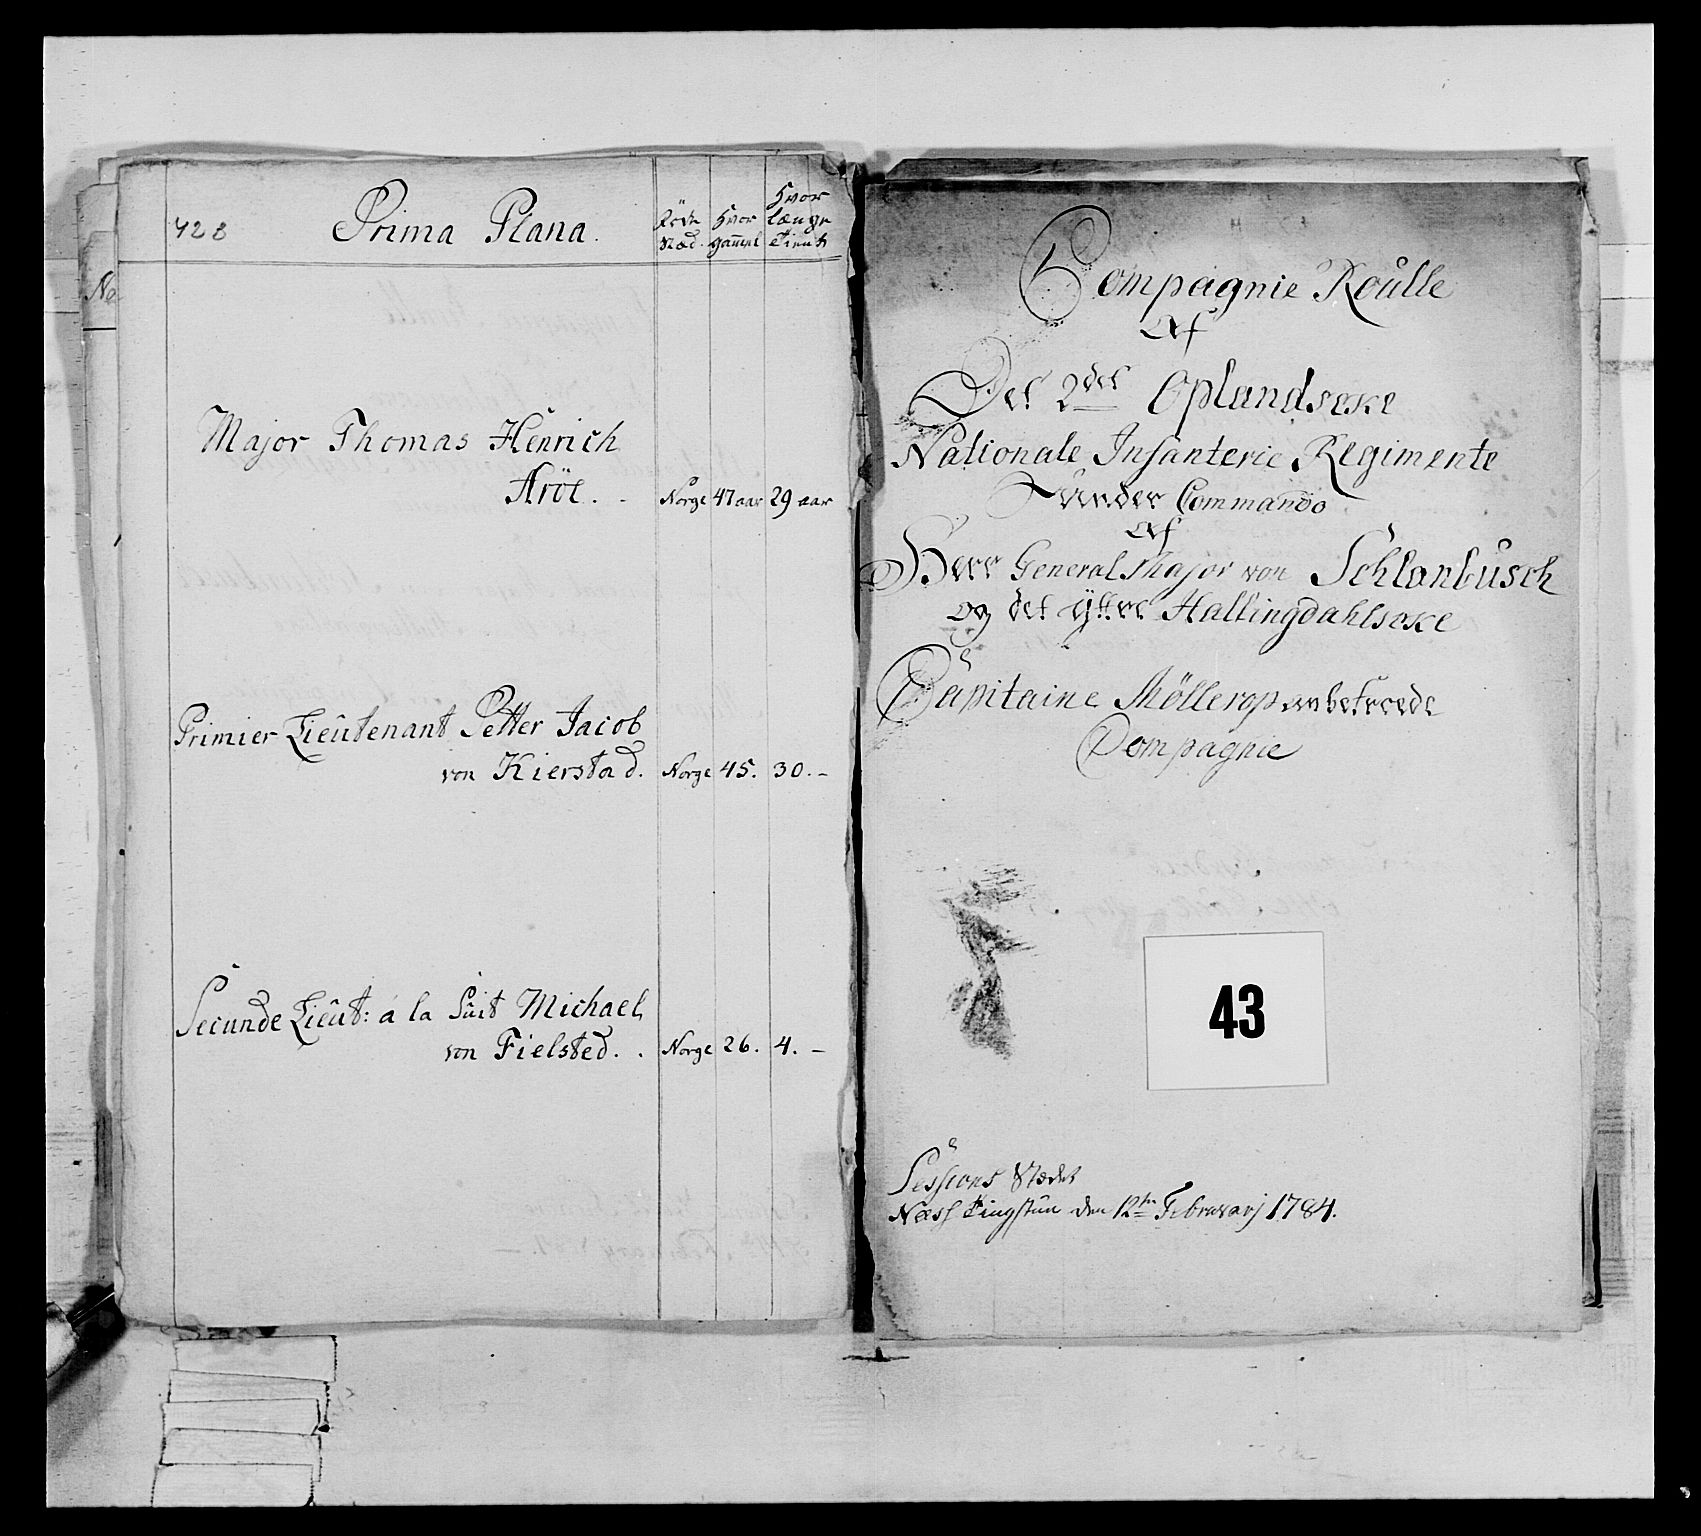 428
Prima Plana.
Föde
Stæd.
Hvor
gam̄el
Hvor
længe
Tient
No
Major Thomas Henrich
Aröe. - Norge 47 aar 29 aar
Primier Lieutenant Petter Jacob
von Kierstad. Norge 45. 30. -
Secunde Lieut: á la Suit Michael
von Fielsted. . Norge 26. 4. -
Compagnie Roulle
Af
Det 2det Oplandseke
Nationale Infanterie Regimente
Under Commando
Af
Herr General Major von Schlanbusch
og det yttre Hallingdahlseke
Capitaine Möllerop anbetroede
Compagnie
43
Sessions Stædet
Næss Tingstun den 12te Februarj 1784.